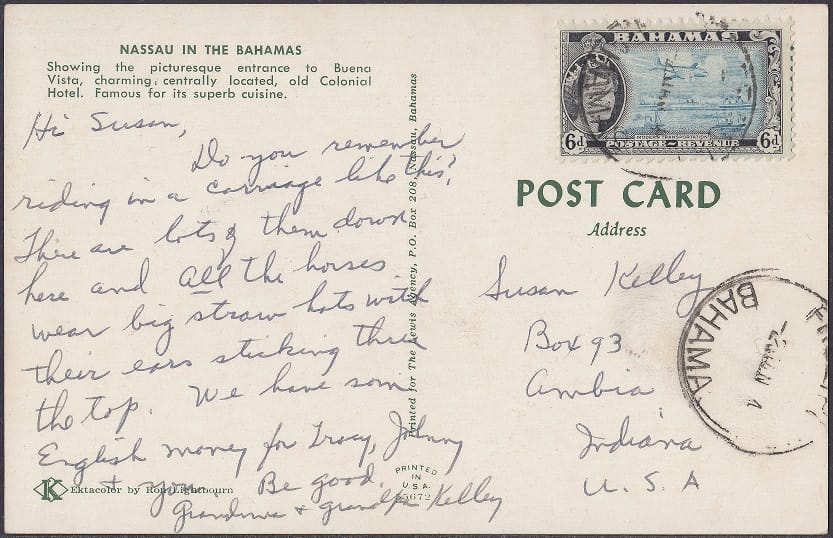 NASSAU IN THE BAHAMAS
Showing the picturesque entrance to Buena
Vista, charming, centrally located, old Colonial
Hotel. Famous for its superb cuisine.
Hi Susan,
Do you remember
riding in a carriage like this?
There are lots of them down
here and all the horses
wear big straw hats with
their ears sticking thru
the top. We have som
English money for Tracy, Johnny
+ you. Be good.
Grandma + grandpa Kelley
Ektacolor by Ron Lightbourn
K
Printed for The Lewis Agency, P.O. Box 208, Nassau, Bahamas
PRINTED
IN
U.S.A.
55672
BAHAMAS
6d
6d
POSTAGE REVENUE
POST CARD
Address
Susan Kelley
Box 93
Ambia
Indiana
U.S.A
BAHAMA